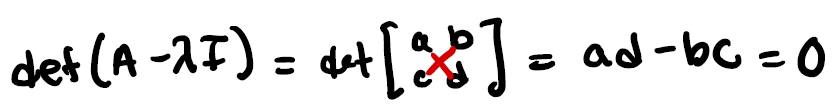 det(A-λI) = det[a b c d] = ad-bc = 0